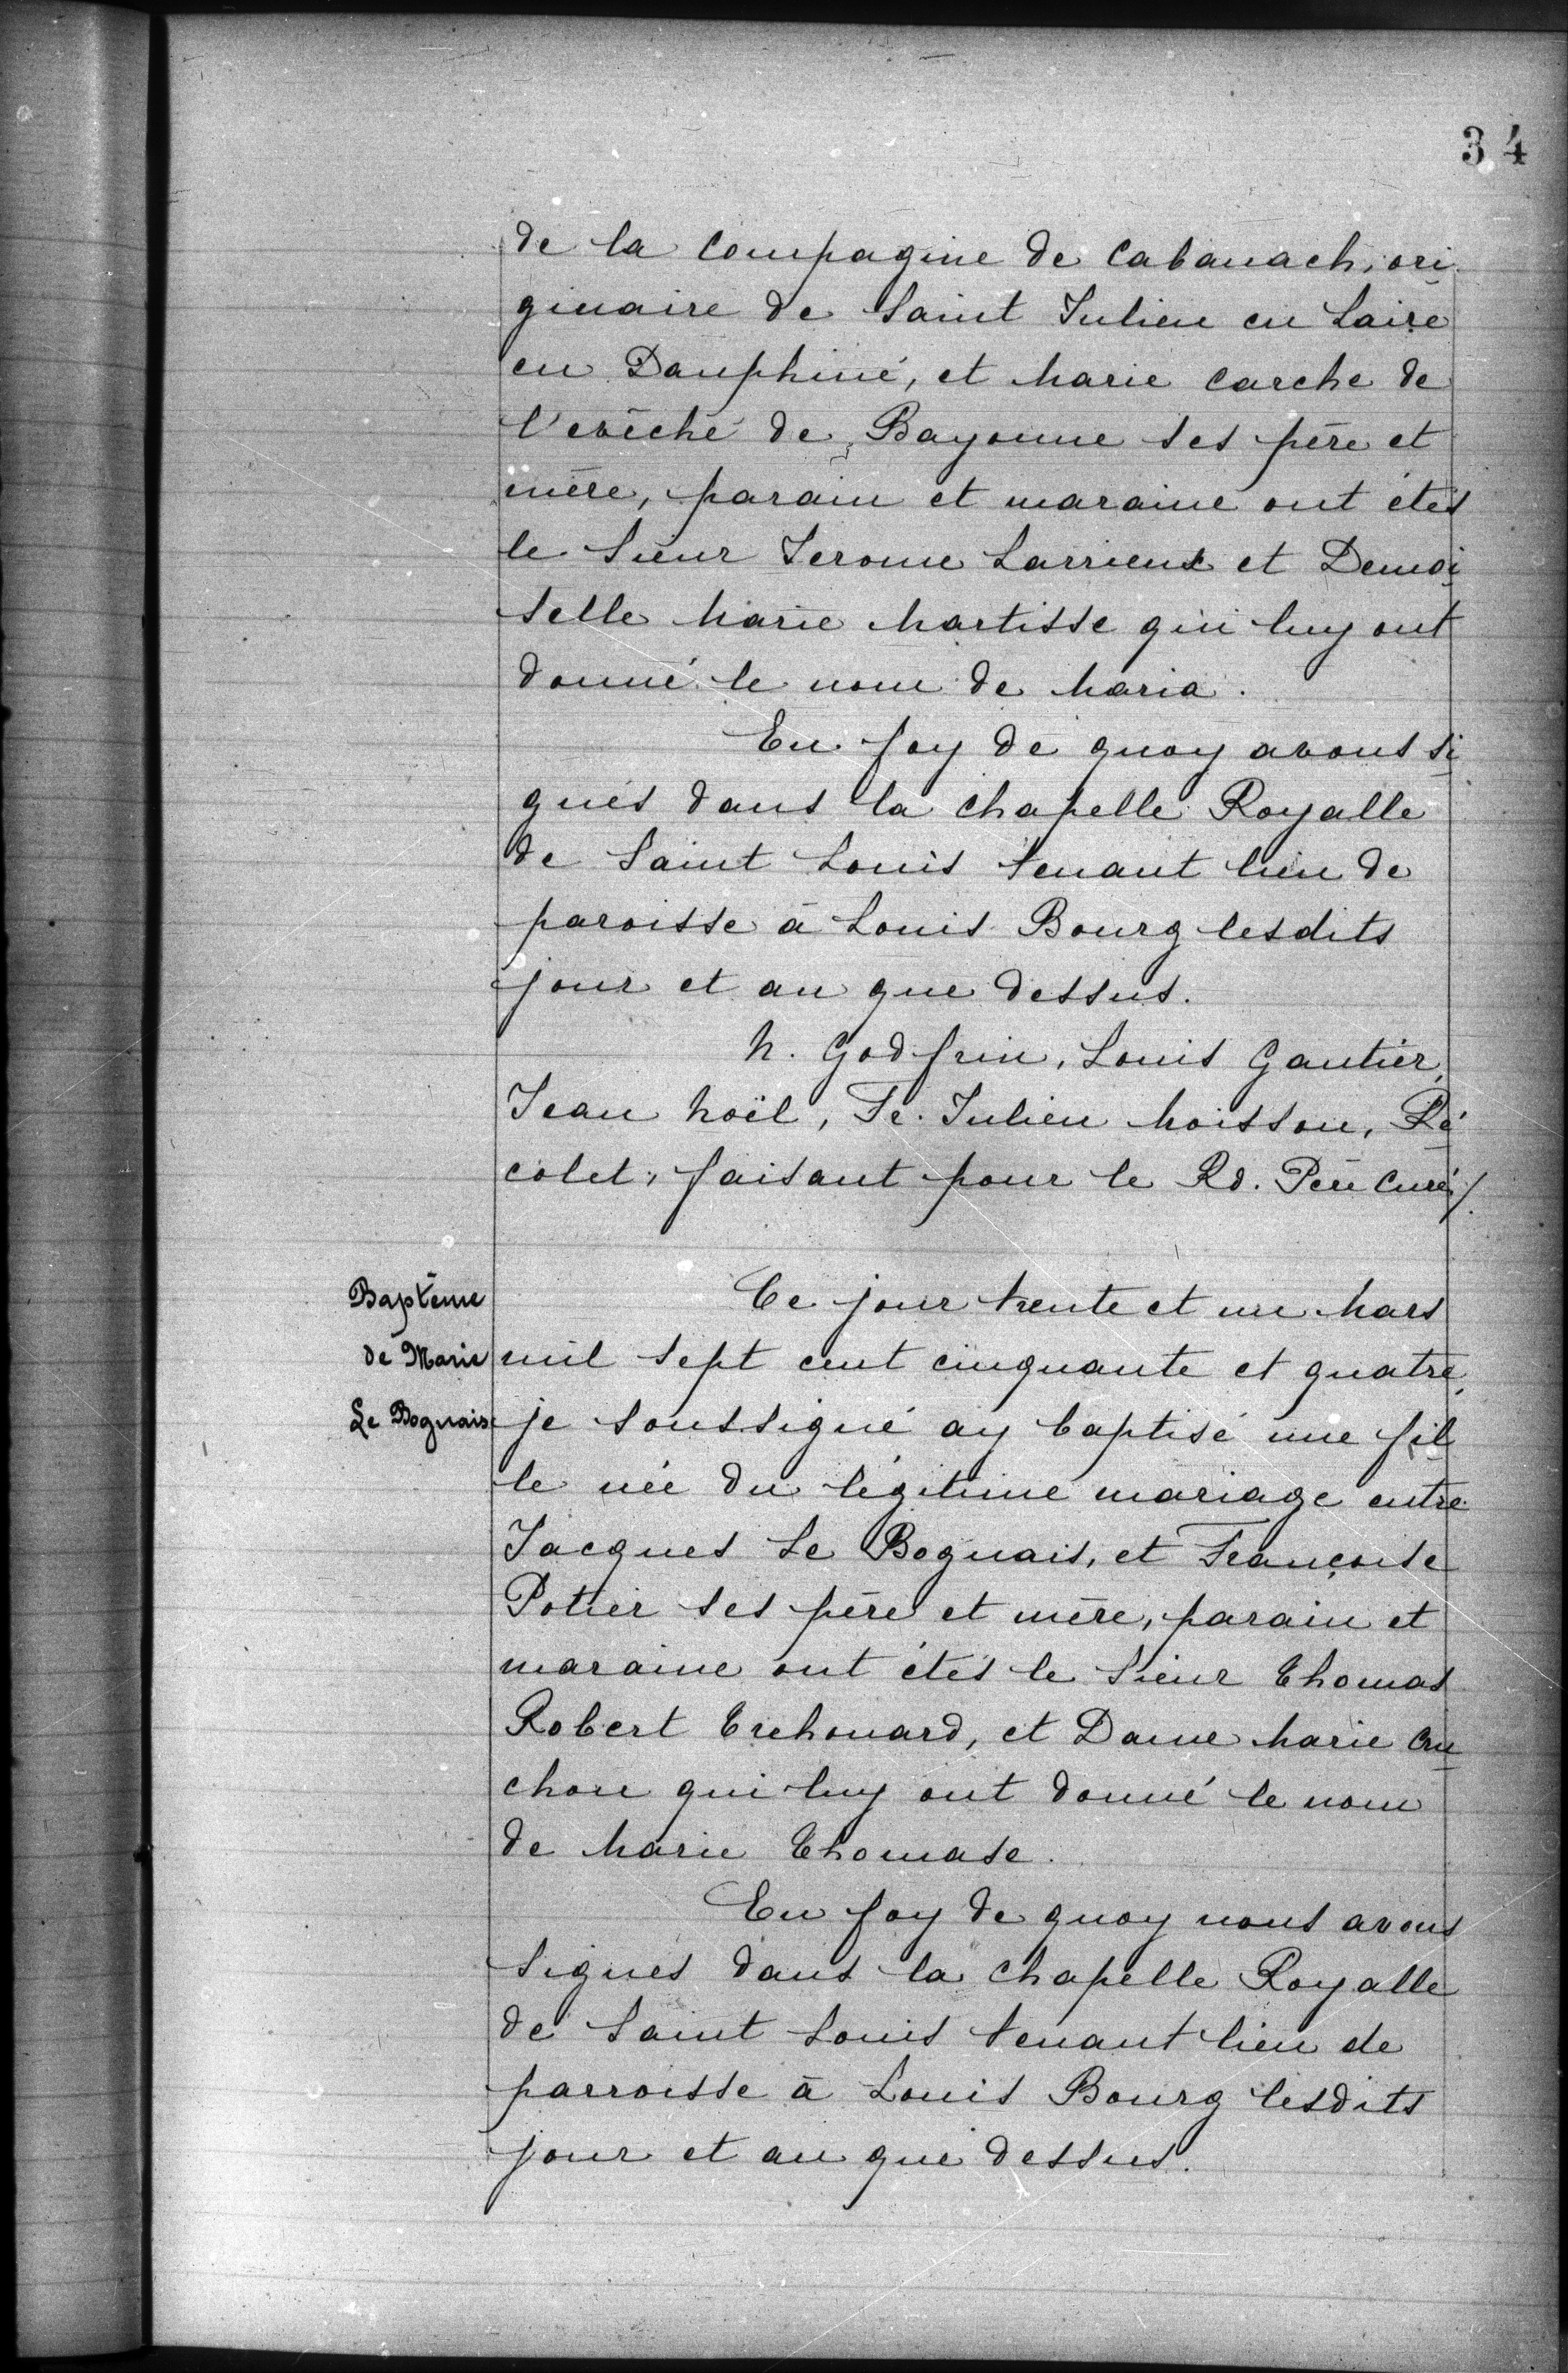 34
de la compagine de Cabanach, ori
ginaire de Saint Julien en Laire
en Dauphiné, et Marie Carche de
l'evêché de Bayonne ses père et
mère, parain et maraine ont étés
le Sieur Jerome Larrieux et Demoi
selle Marie Martisse qui luy ont
donné le nom de Maria.
En foy de quoy avons si
gnés dans la chapelle Royalle
de Saint Louis tenant lieu de
paroisse à Louis Bourg lesdits
jour et an que dessus.
N. Godfrin, Louis Gautier,
Jean Noël, Fr. Julien Moisson, Ré
colet, faisant pour le Rd. Père Curé /.
Baptême
de Marie
Le Bognais
Ce jour trente et un Mars
mil sept cent cinquante et quatre,
je soussigné ay baptisé une fil
le née du légitime mariage entre
Jacques Le Bognais, et Françoise
Potier ses père et mère, parain et
maraine ont étés le Sieur Thomas
Robert Trehouard, et Dame Marie Cru
chon qui luy ont donné le nom
de Marie Thomase.
En foy de quoy nous avons
signés dans la chapelle Royalle
de Saint Louis tenant lieu de
parroisse à Louis Bourg lesdits
jour et an que dessus.